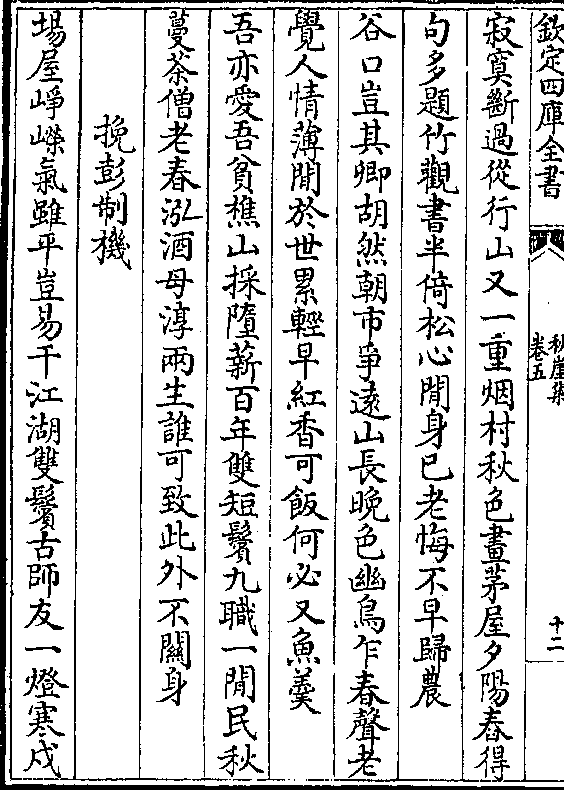 欽定四庫全書
秋崖集
卷五
十二
寂寞斷過從行山又一重烟村秋色畫茅屋夕陽舂得
句多題竹觀書半倚松心閒身已老悔不早歸農
谷口豈其卿胡然朝市爭遠山長晚色幽鳥乍春聲老
覺人情薄閒於世累輕早紅香可飯何必又魚羮
吾亦愛吾貧樵山採墮薪百年雙短鬢九職一閒民秋
蔓茶僧老春泓酒母淳兩生誰可致此外不關身
挽彭制機
場屋崢嶸氣雖平豈易干江湖雙鬢古師友一燈寒戍